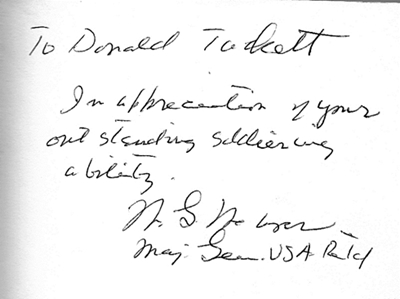 To Donald Tackett
In appreciation of your
outstanding soldiering
ability.
Maj. Gen. USA Ret'd